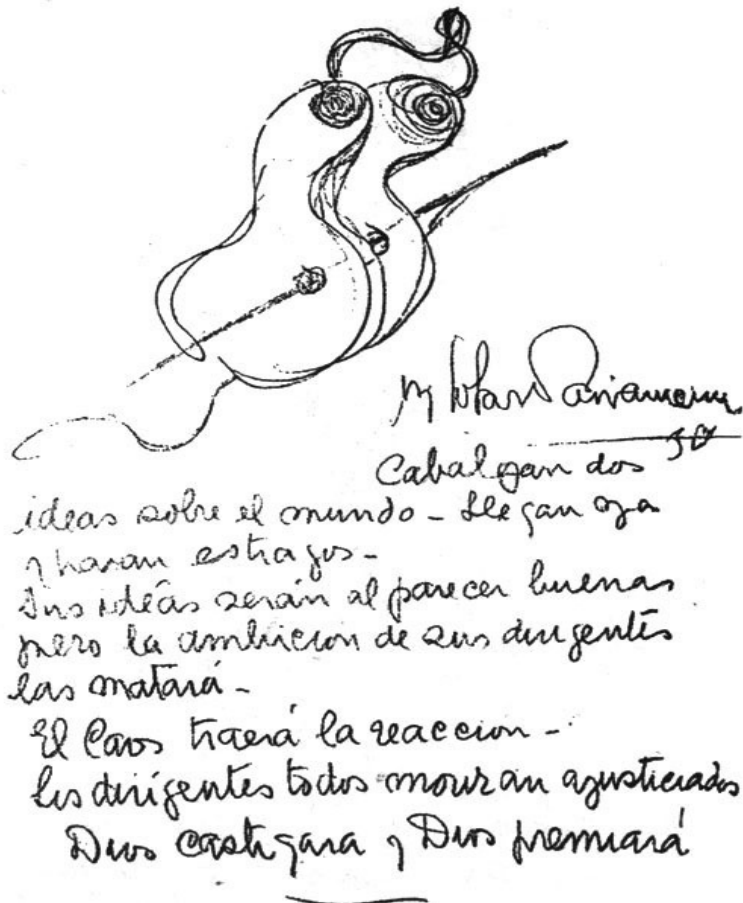 B Solari Parravicini
38
Cabalgan dos
ideas sobre el mundo - Llegan ya
y haran estragos -
Sus idéas serán al parecer buenas
pero la ambicion de sus dirigentes
las matará -
El Caos traerá la reaccion -
los dirigentes todos moriran ajusticiados
Dios castigara y Dios premiará